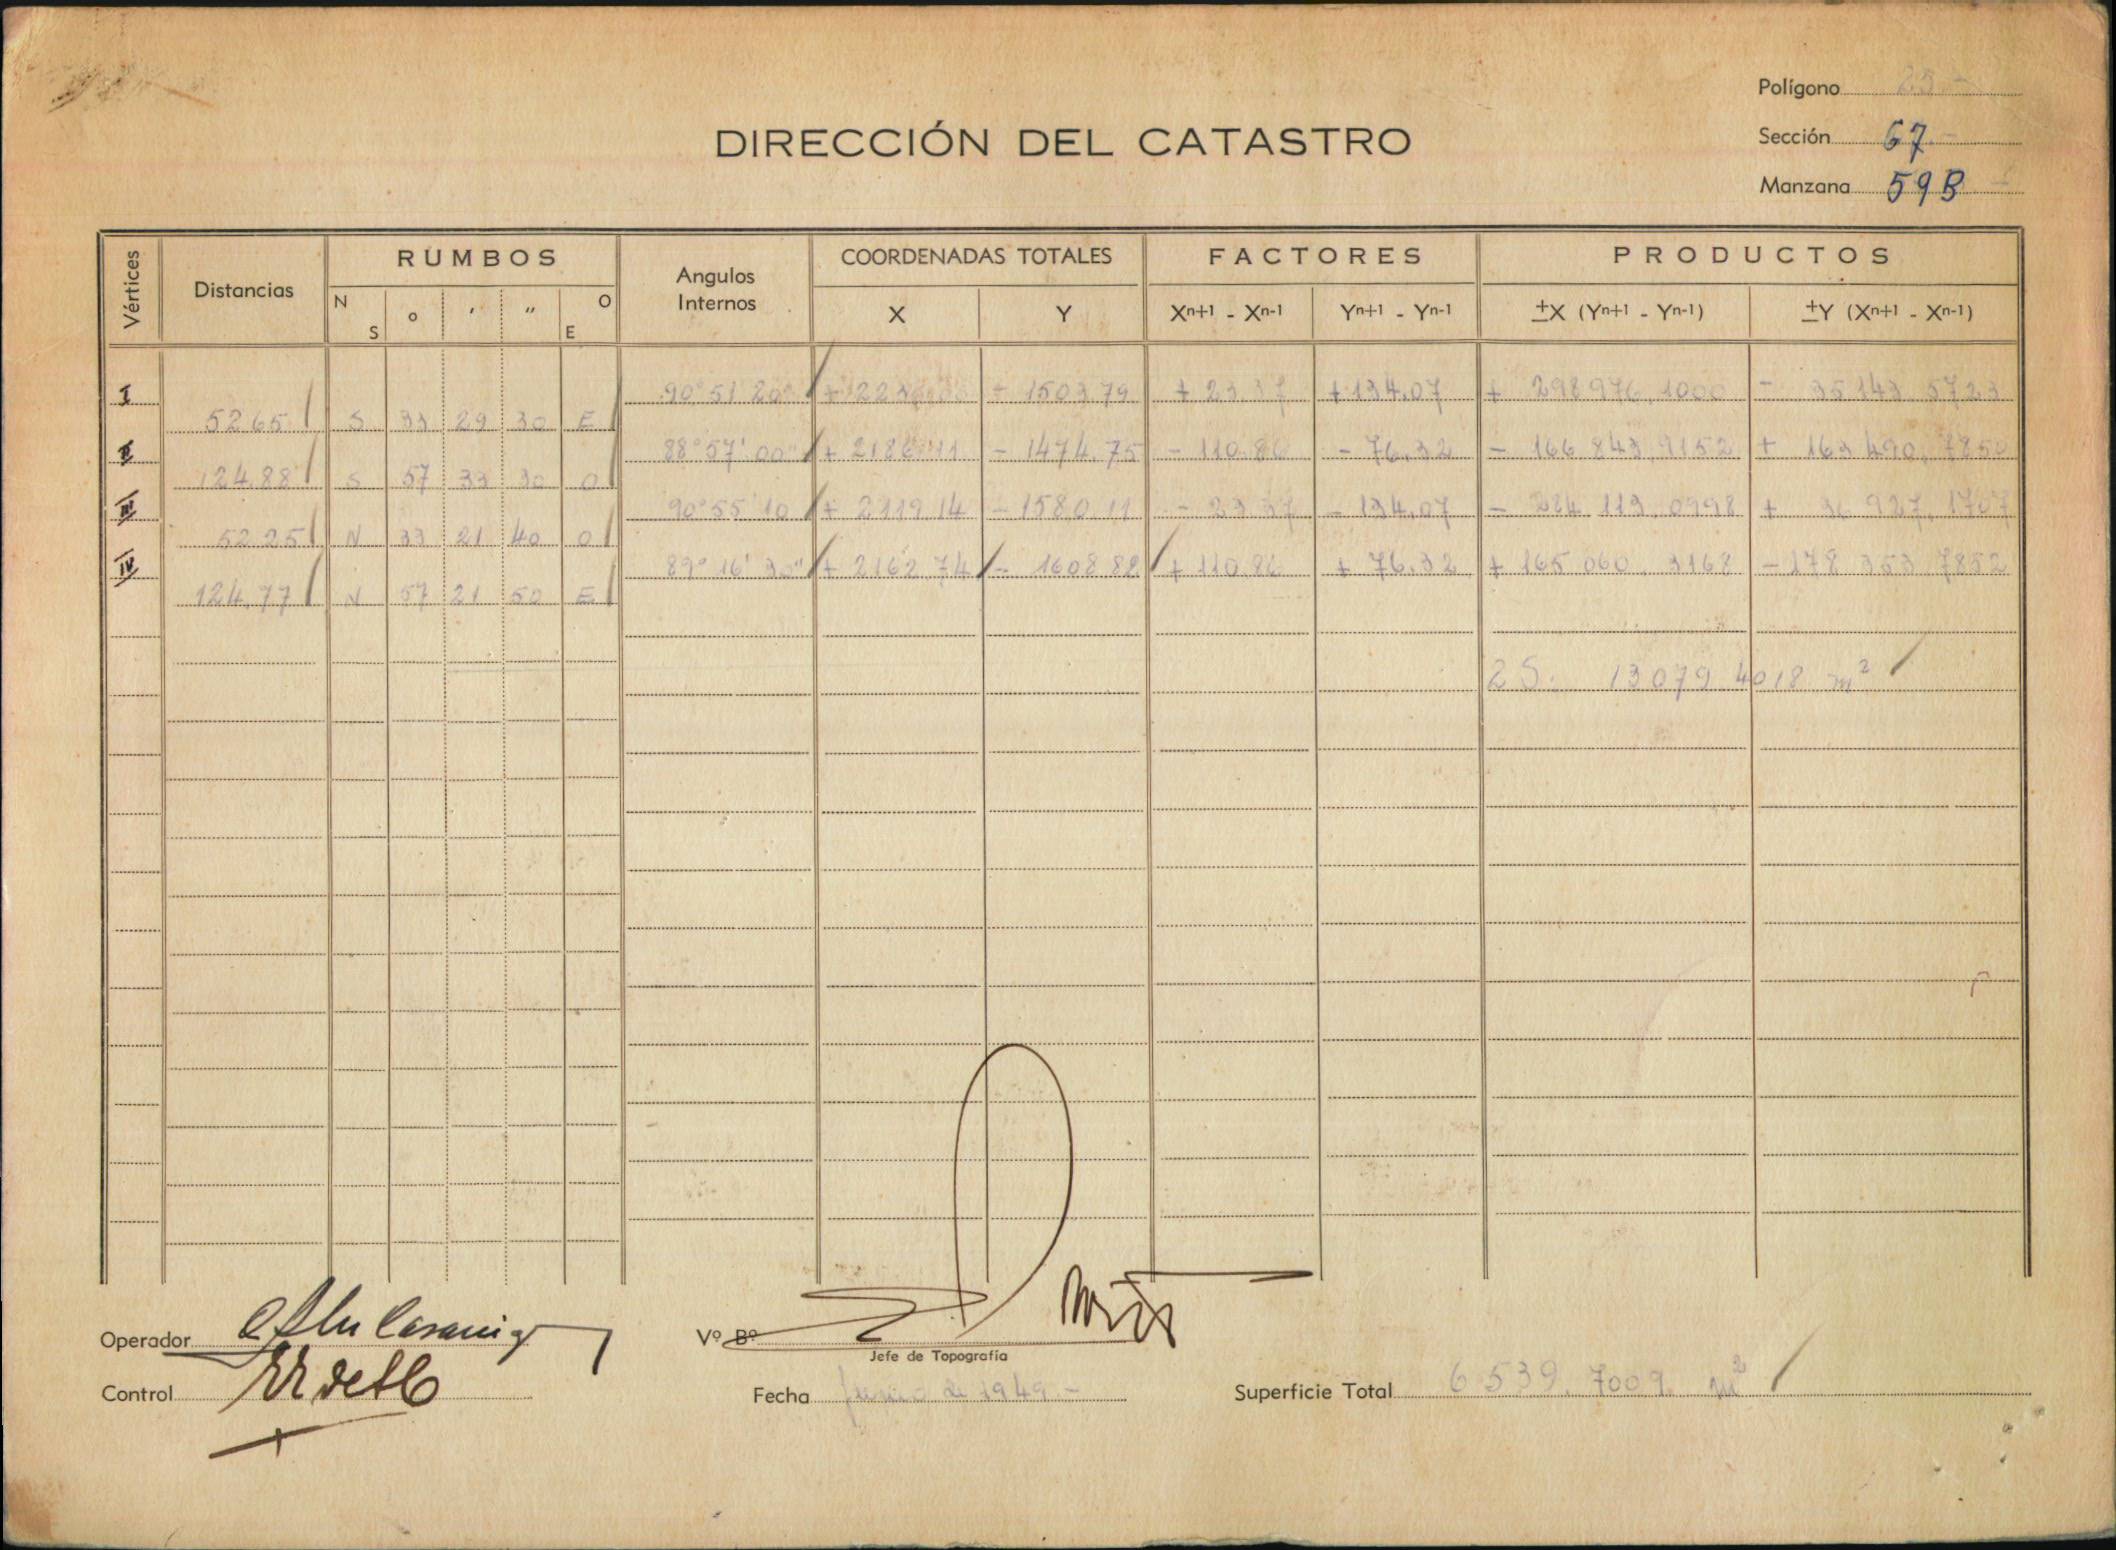 Polígono 25 -
DIRECCIÓN DEL CATASTRO
Sección 67 -
Manzana 59B -
Vértices Distancias RUMBOS Angulos Internos COORDENADAS TOTALES FACTORES PRODUCTOS
N S o ' " O E X Y Xn+1 - Xn-1 Yn+1 - Yn-1 ±X (Yn+1 - Yn-1) ±Y (Xn+1 - Xn-1)
I 90° 51' 20" + 2230.00 - 1503.79 + 23.37 + 134.07 + 298 976.1000 - 35 143.5723
52.65 S 33 29 30 E
II 88° 57' 00" + 2186.11 - 1474.75 - 110.86 - 76.32 - 166 843.9152 + 163 490.7850
124.88 S 57 33 30 O
III 90° 55' 10 + 2119.14 - 1580.11 - 23.37 - 134.07 - 284 113.0998 + 36 927.1707
52.25 N 33 21 40 O
IV 89° 16' 30" + 2162.74 - 1608.82 + 110.86 + 76.32 + 165 060.3168 - 178 353.7852
124.77 N 57 21 50 E
2S: 13 079 4018 m²
Operador
Vº Bº
Jefe de Topografía
Control
Fecha Junio de 1949 -
Superficie Total 6 539.7009 m²